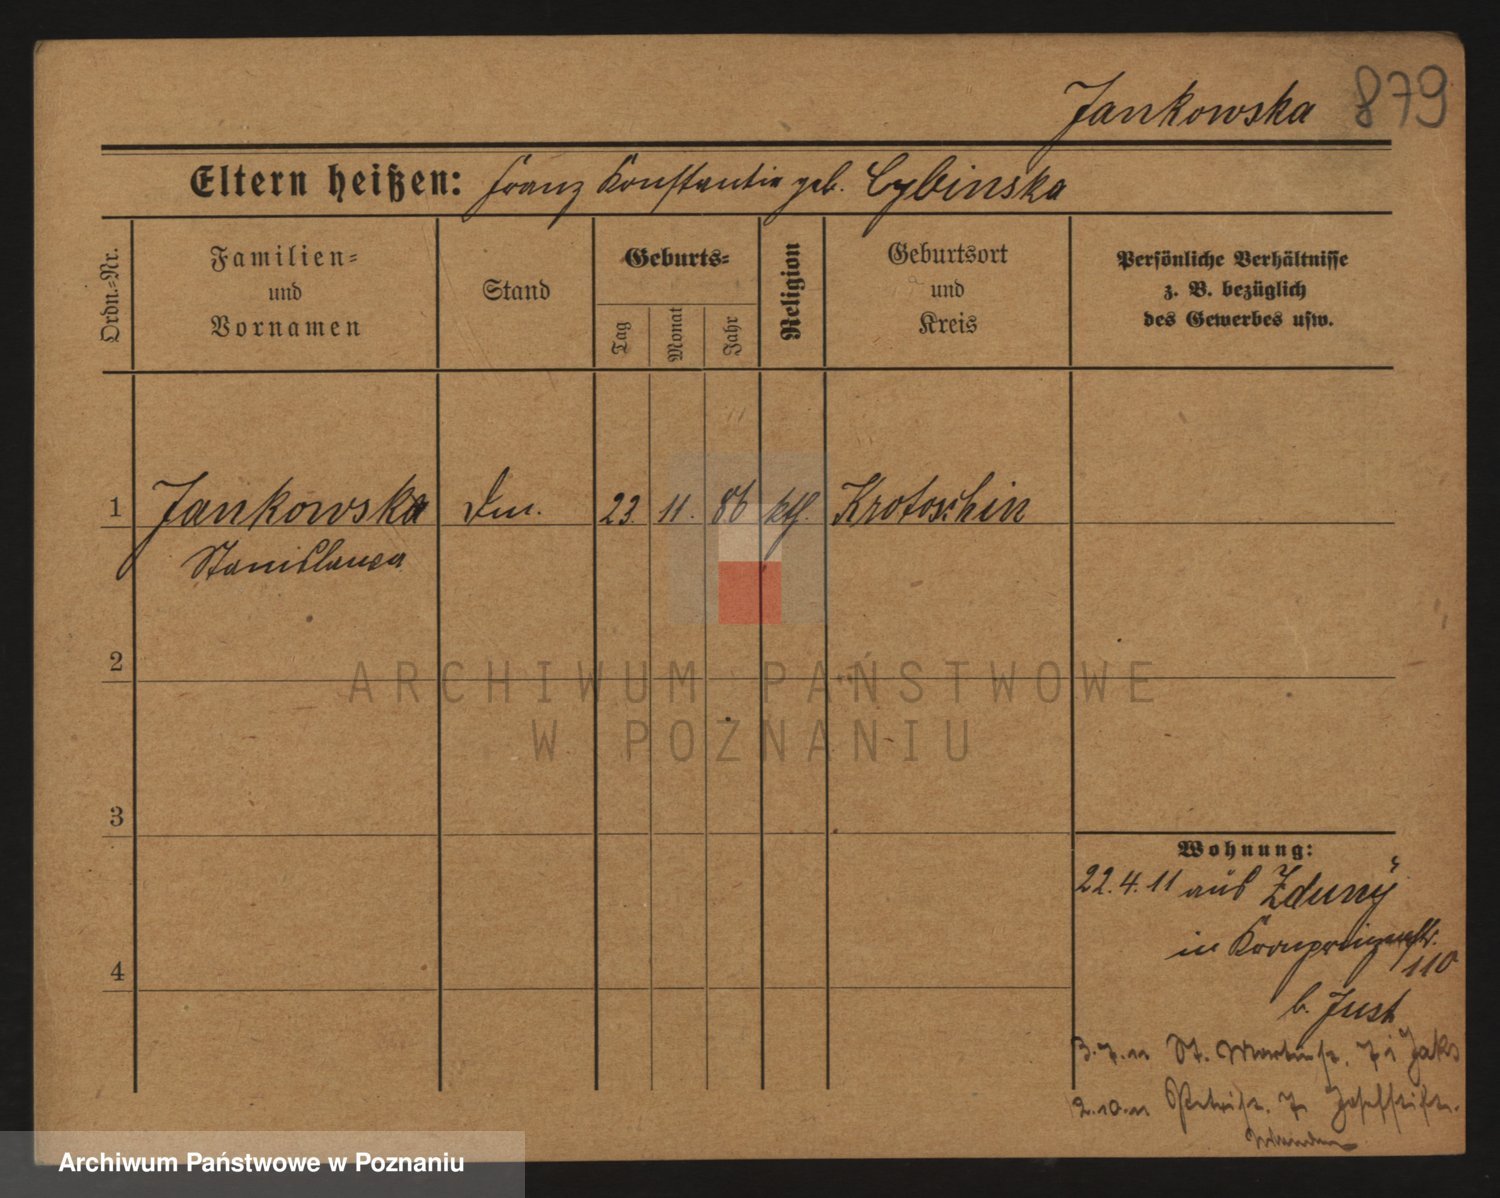 Jankowska 879
Eltern heißen: Franz Konstantia geb. Cybinska
Ordn.=Nr.
Familien=
und
Vornamen
Stand
Geburts=
Tag
Monat
Jahr
Religion
Geburtsort
und
Kreis
Persönliche Verhältnisse
z. B. bezüglich
des Gewerbes usw.
1 Jankowska 23. 11. 86 kth. Krotoschin
Stanislawa
2
ARCHIWUM PAŃSTWOWE
W POZNANIU
3
Wohnung:
22.4.11 aus Zduny
in Kronprinzenstr.
110
4
b. Just
3.7.11 St. Martinstr.
2.10.11
Archiwum Państwowe w Poznaniu